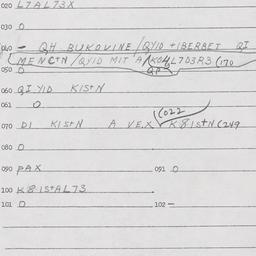 020 L7AL73X
030 0
040 - QH BUKOVINE/QYID +IBERBET QI
MENC+N/QYID MIT A/K04L703R3 (170
050 0 QP
060 QI YID KIS+N
061 0
(022
070 DI KIS+N A VEX K8IS+N (249
080 0
090 PAX 091 0
100 K8IS+AL73
101 0 102 -